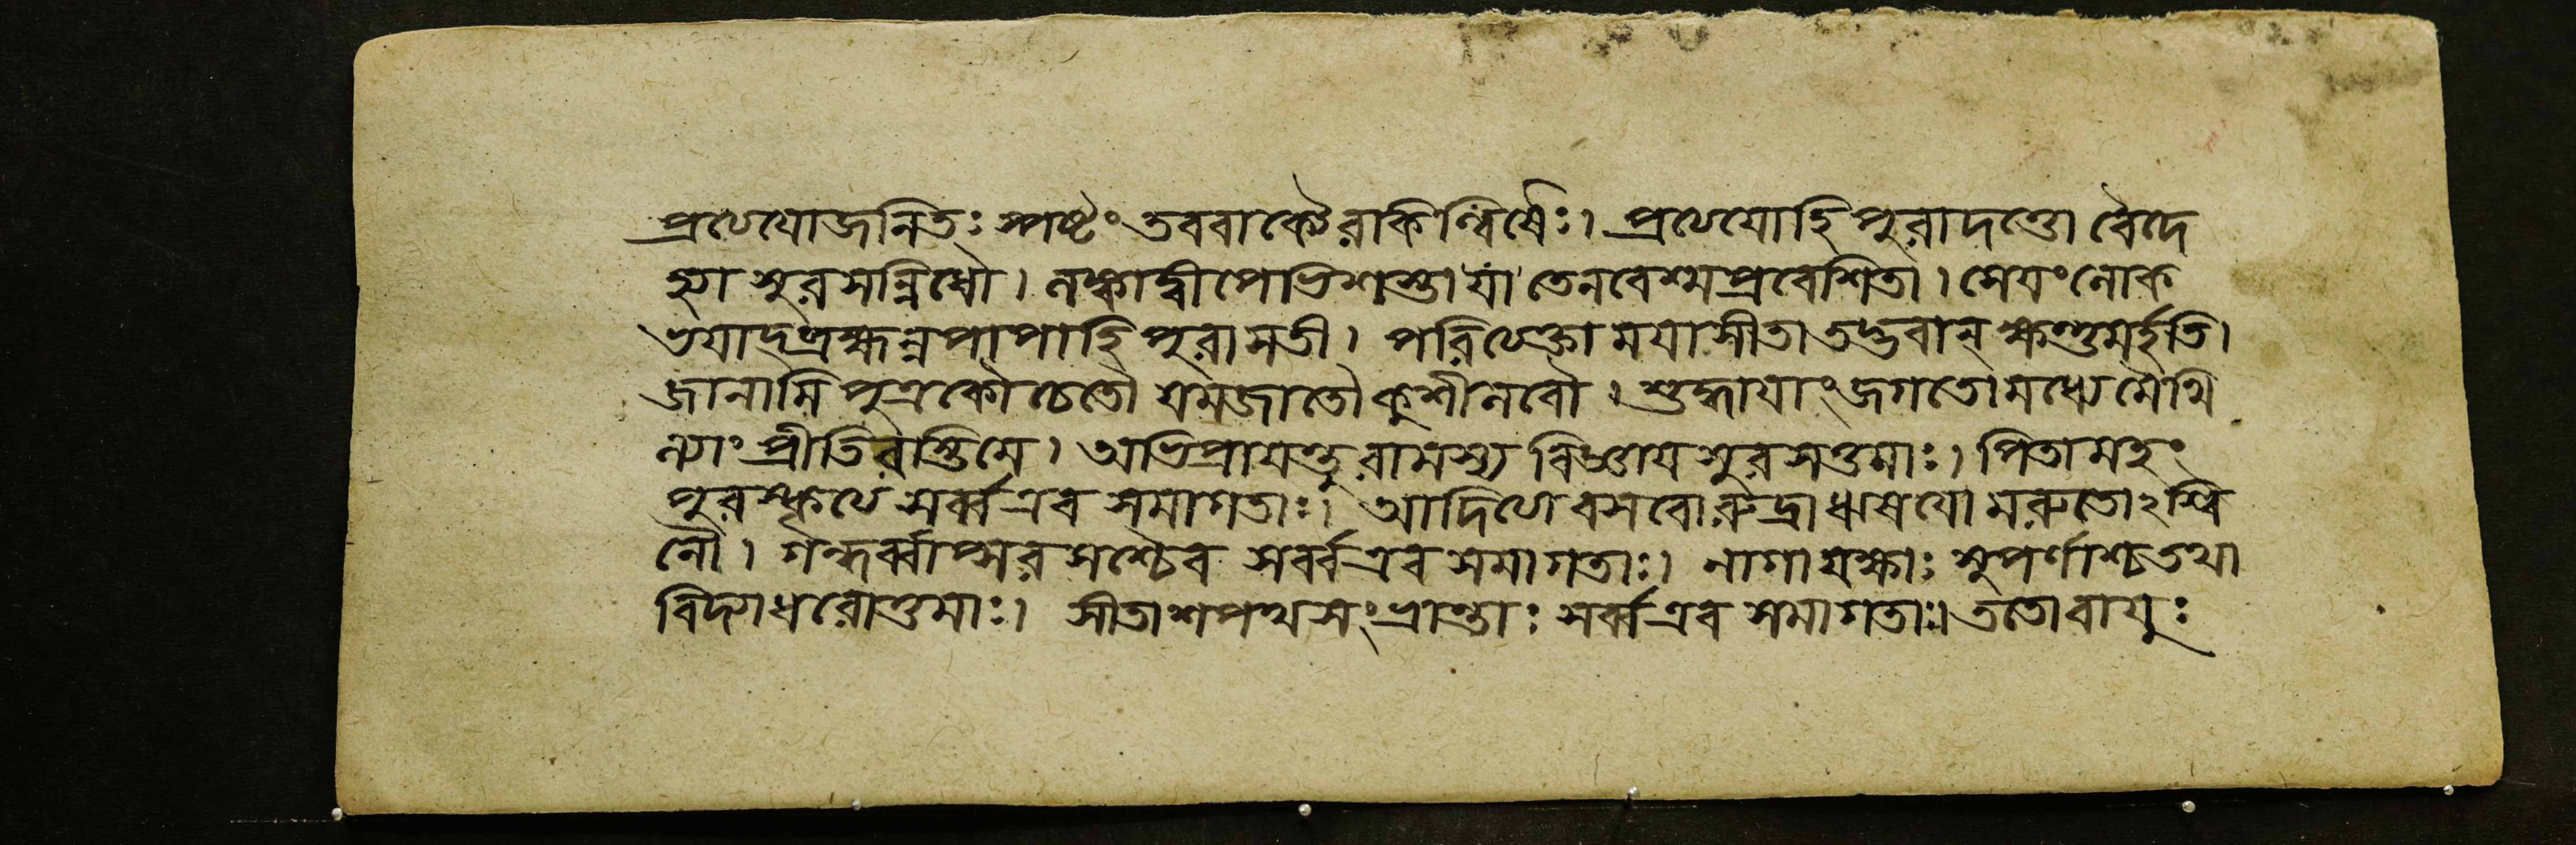 প্রত্যয়োজনিতঃ স্পষ্টং তববাক্যৈরকিল্বিষৈঃ। প্রত্যয়োহি পুরাদত্তো বৈদে
হ্যা সুরসন্নিধৌ। লঙ্কাদ্বীপেভিশস্তা যা তেনবেশ্মপ্রবেশিতা। সেয়ংলোক
ভয়াদ্ব্রহ্মন্নপাপাহি পুরাসতী। পরিত্যক্তা ময়াসীতা তদ্ভবান্ ক্ষন্তুমর্হতি।
জানামি পুত্রকৌ চেতৌ যমজাতৌ কুশীলবৌ। শুদ্ধায়াং জগতোমধ্যে মৈথি
ল্যাং প্রীতিরস্তিমে। অভিপ্রায়ন্তু রামস্য বিজ্ঞায় সুরসত্তমাঃ। পিতামহং
পুরস্কৃত্য সর্ব্বএব সমাগতাঃ। আদিত্যা বসবো রুদ্রা ঋষয়ো মরুতোঽশ্বি
নৌ। গন্ধর্ব্বাপ্সরসশ্চৈব সর্ব্বএব সমাগতাঃ। নাগা যক্ষাঃ সুপর্ণাশ্চ তথা
বিদ্যাধরোত্তমাঃ। সীতাশপথসংভ্রান্তাঃ সর্ব্বএব সমাগতাঃ। ততোবায়ুঃ